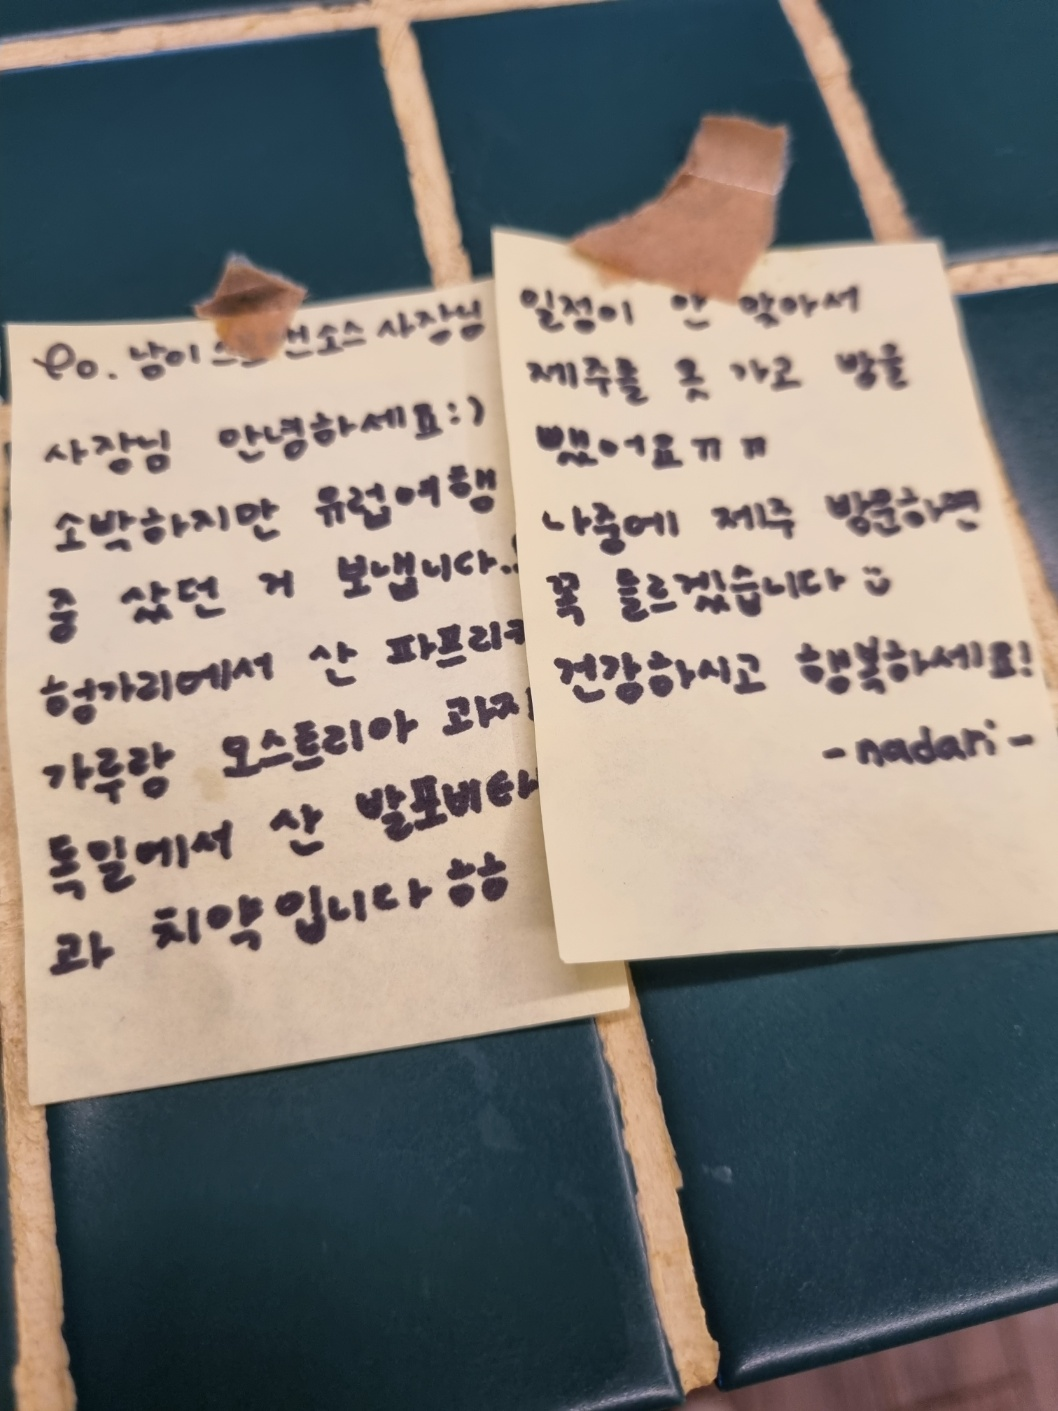 To. 남이 사장님
사장님 안녕하세요:)
소박하지만 유럽여행
중 샀던 거 보냅니다..
헝가리에서 산 파프리카
가루랑 오스트리아 과자
독일에서 산 발포비타
과 치약입니다 ㅎㅎ
일정이 안 맞아서
제주를 못 가고 방을
뺐어요ㅠㅠ
나중에 제주 방문하면
꼭 들르겠습니다
건강하시고 행복하세요!
-nadari-